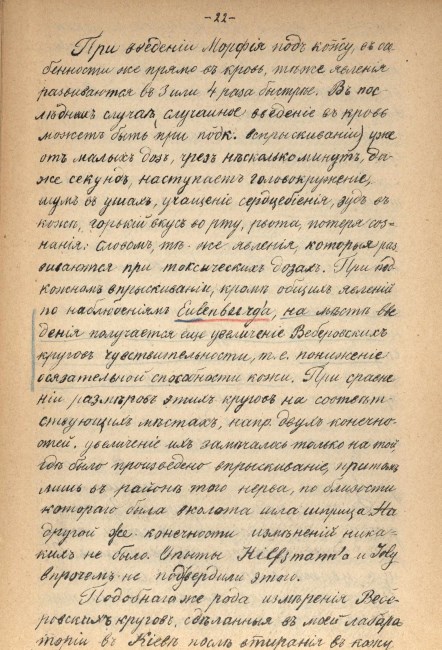 -22-
При введеніи Морфія подъ кожу, въ осо
бенности же прямо въ кровь, тѣже явленія
развиваются въ 3 или 4 раза быстрѣе. Въ пос-
лѣднихъ случаяхъ (случайное введеніе въ кровь
можетъ быть при подк. вспрыскиваніи) уже
отъ малыхъ дозъ, чрезъ нѣсколько минутъ, да-
же секундъ, наступаетъ головокруженіе,
шумъ въ ушахъ, учащеніе сердцебіенія, зудъ въ
кожѣ, горькій вкусъ во рту, рвота, потеря соз-
нанія: словомъ, тѣ-же явленія, которыя раз
виваются при токсическихъ дозахъ. При под
кожномъ впрыскиваніи, кромѣ общихъ явленій
по наблюденіямъ Eulenburg'а, на мѣстѣ вве
денія получается еще увеличеніе Веберовскихъ
круговъ чувствительности, т.е. пониженіе
осязательной способности кожи. При сравне
ніи размѣровъ этихъ круговъ на соотвѣт-
ствующихъ мѣстахъ, напр двухъ конечно-
стей. увеличеніе ихъ замѣчалось только на той,
гдѣ было произведено впрыскиваніе, притомъ
лишь въ районѣ того нерва, по близости
котораго была вколота игла шприца. На
другой же конечности измѣненій ника-
кихъ не было. Опыты и
впрочемъ не подтвердили этого.
Подобнаго же рода измѣренія Вебе-
ровскихъ круговъ, сдѣланныя въ моей лабара
торіи въ Кіевѣ послѣ втиранія въ кожу